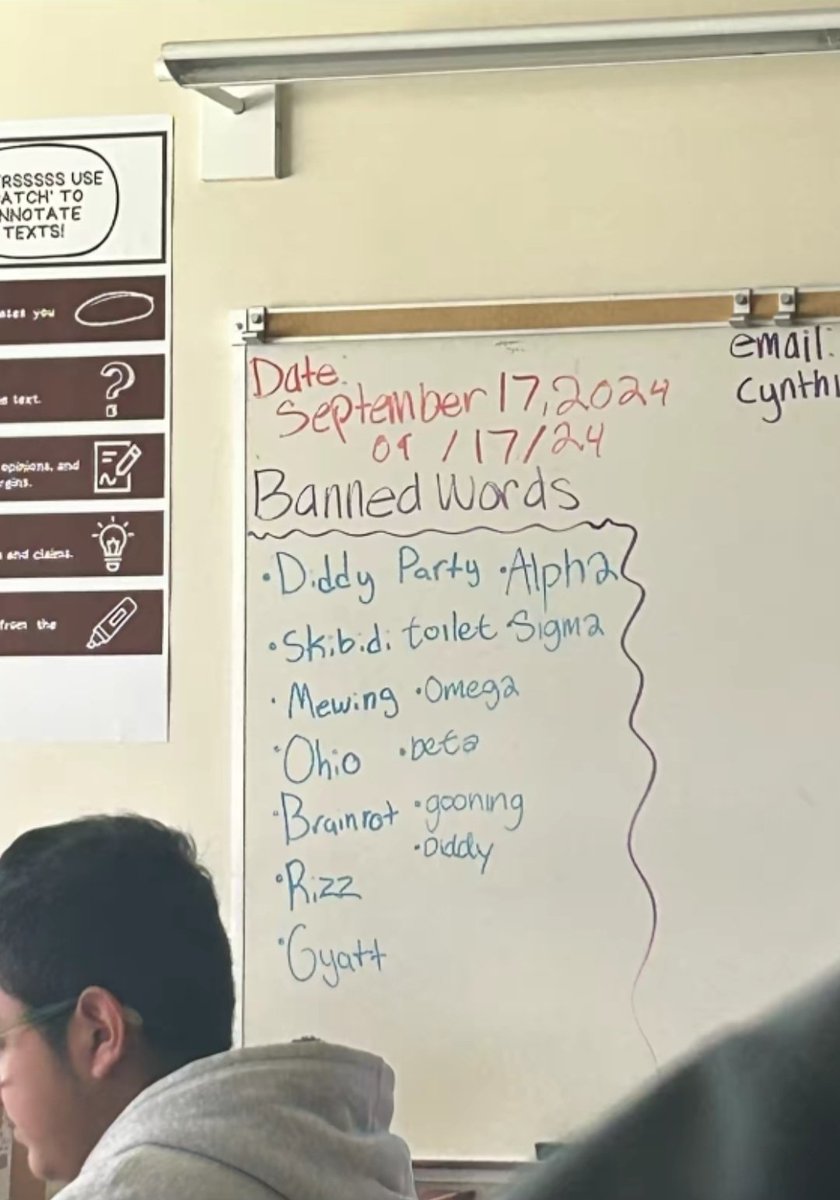 RSSSSS USE
ATCH' TO
NNOTATE
TEXTS!
ates you
text.
opinions, and
and claims.
from the
Date:
September 17, 2024
09/17/24
Banned Words
• Diddy Party • Alpha
• Skibidi toilet Sigma
• Mewing • Omega
• Ohio • beta
• Brainrot • gooning
• Diddy
• Rizz
• Gyatt
email:
Cynthi